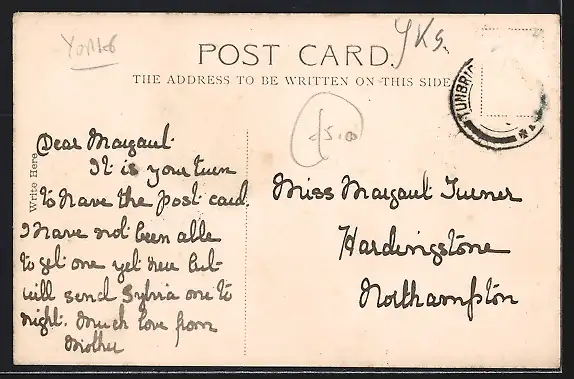 Yorks
Yks.
POST CARD.
THE ADDRESS TO BE WRITTEN ON THIS SIDE
TUNBRI
£5.00
Write Here
Dear Margaret
It is your turn
to have the post card
I have not been able
to get one yet here but
will send Sylvia one to
night. Much love from
Mother
Miss Margaret Turner
Hardingstone
Northampton